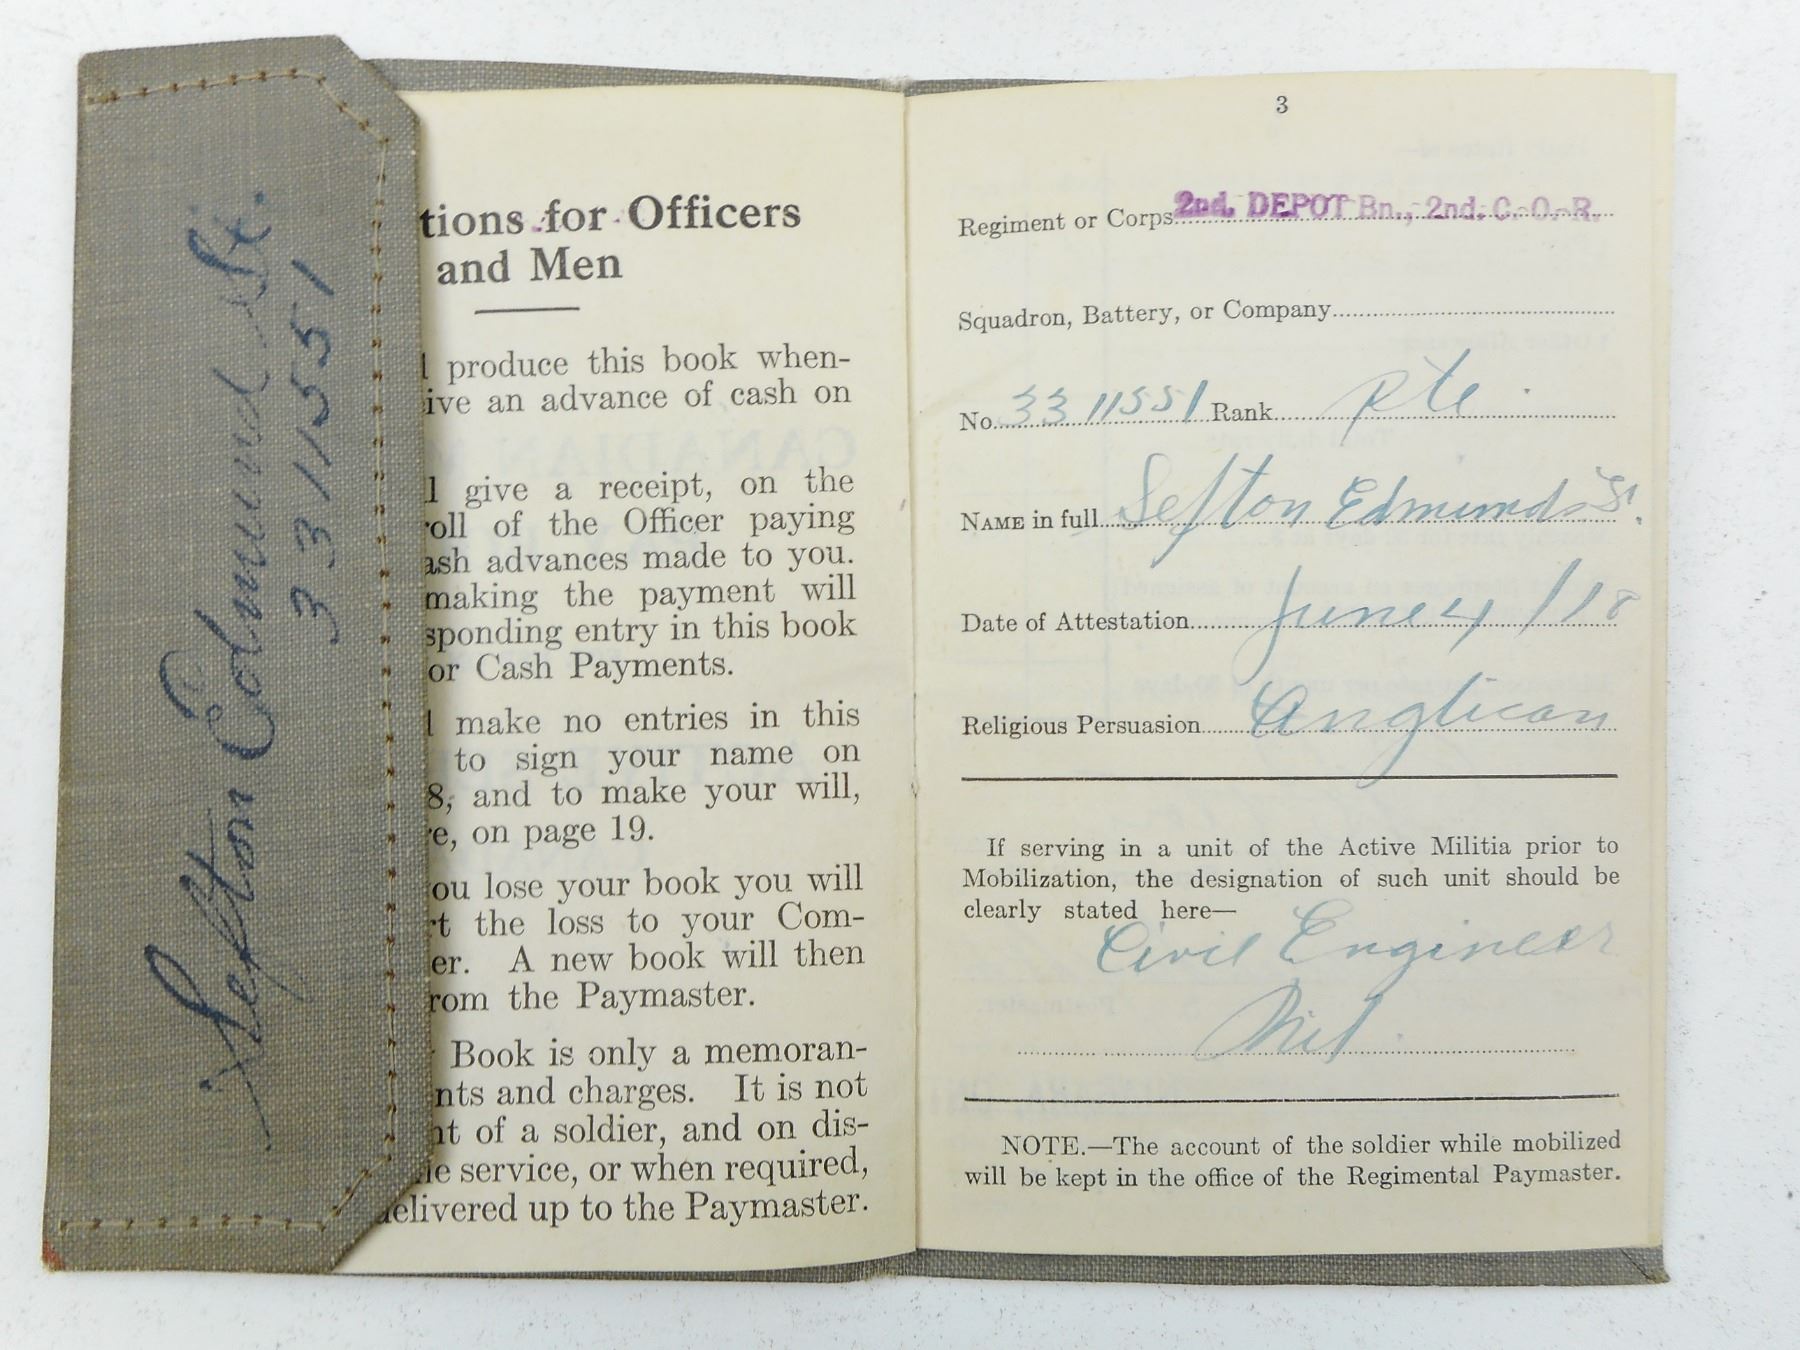 Sefton Edmund St.
3311551
tions for Officers
and Men
l produce this book when-
ive an advance of cash on
l give a receipt, on the
roll of the Officer paying
ash advances made to you.
making the payment will
sponding entry in this book
or Cash Payments.
l make no entries in this
to sign your name on
8, and to make your will,
re, on page 19.
ou lose your book you will
rt the loss to your Com-
er. A new book will then
rom the Paymaster.
Book is only a memoran-
nts and charges. It is not
nt of a soldier, and on dis-
he service, or when required,
delivered up to the Paymaster.
3
Regiment or Corps 2nd. DEPOT Bn., 2nd. C. O. R.
Squadron, Battery, or Company
No. 3311551 Rank Pte
NAME in full Sefton Edmunds St.
Date of Attestation June 4/18
Religious Persuasion Anglican
If serving in a unit of the Active Militia prior to
Mobilization, the designation of such unit should be
clearly stated here—
Civil Engineer
Nil
NOTE.—The account of the soldier while mobilized
will be kept in the office of the Regimental Paymaster.